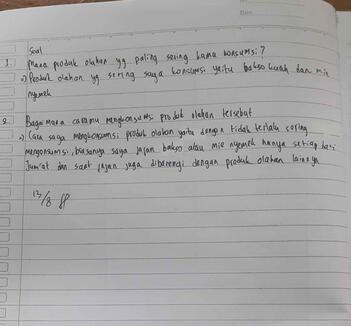 Soal
1. Mana produk olahan yg paling sering kamu konsumsi?
→) Produk olahan yg sering saya konsumsi yaitu bakso kuah dan mie
nyemek
2. Bagaimana caramu mengkonsumsi produk olahan tersebut
→) Cara saya mengkonsumsi produk olahan yaitu dengan tidak terlalu sering
mengonsumsi, biasanya saya jajan bakso atau mie nyemek hanya setiap hari
Jum'at dan saat jajan juga dibarengi dengan produk olahan lainnya
13/8